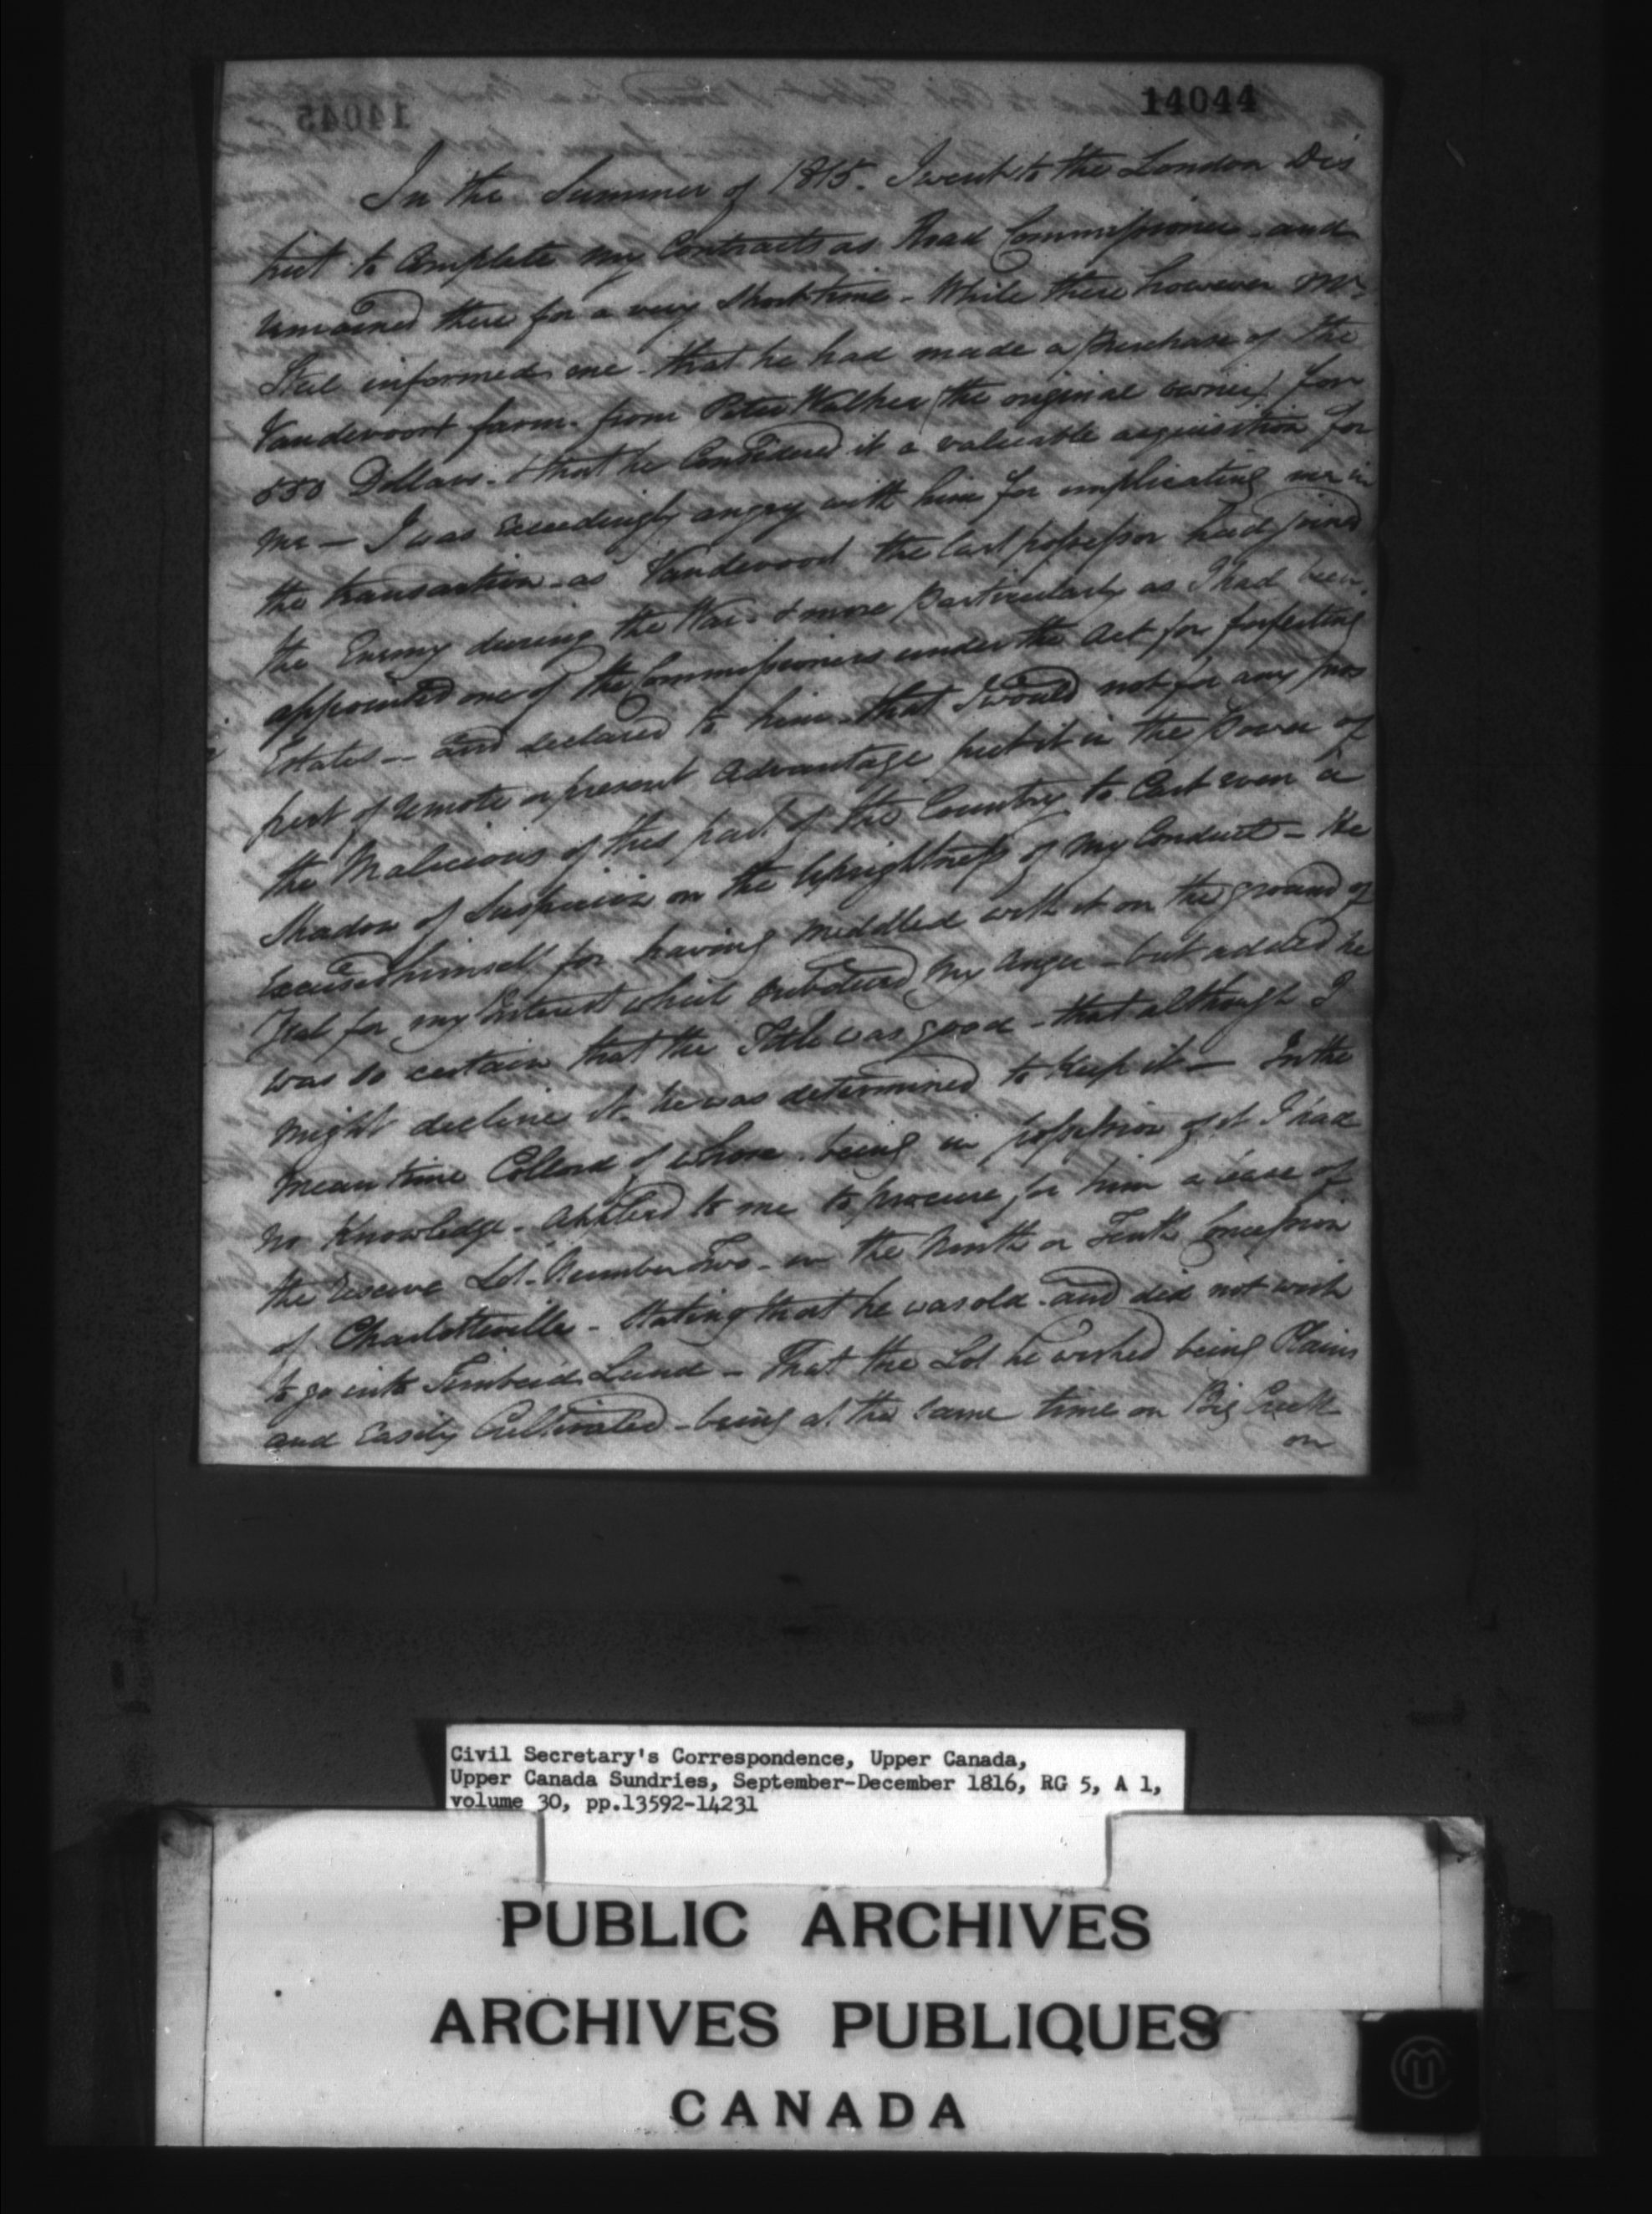 14044
In the Summer of 1815. I went to the London Dis
trict to Complete my Contracts as Road Commissioner - and
remained there for a very short time - While there however Mr
Steel informed me - that he had made a Purchase of the
Vandevoort farm - from Peter Walker (the original owner) for
550 Dollars. & that he Considered it a valuable acquisition for
me — I was Exceedingly angry with him for implicating me in
the transaction - as Vandevoort the last possessor had joined
the Enemy during the War - & more Particularly as I had been
appointed one of the Commissioners under the Act for forfeiting
Estates — and declared to him - that I would not for any pros
pect of remote or present Advantage put it in the Power of
the Malicious of this part of the Country to Cast even a
Shadow of Suspicion on the Uprightness of my Conduct - He
Excused himself for having meddled with it on the ground of
Zeal for my Interest which subdued my Anger - but added he
was so certain that the Title was good - that although I
might decline it he was determined to keep it — In the
mean time Collard of whose being in possession of it I had
no knowledge - Applied to me to procure for him a lease of
the reserve Lot - Number Two - in the Ninth or Tenth Concession
of Charlotteville - Stating that he was old - and did not wish
to go into Timbered Land - That the Lot he wished being Plains
and Easily Cultivated - being at the same time on Big Creek
on
14045
Civil Secretary's Correspondence, Upper Canada,
Upper Canada Sundries, September-December 1816, RG 5, A 1,
volume 30, pp.13592-14231
PUBLIC ARCHIVES
ARCHIVES PUBLIQUES
CANADA